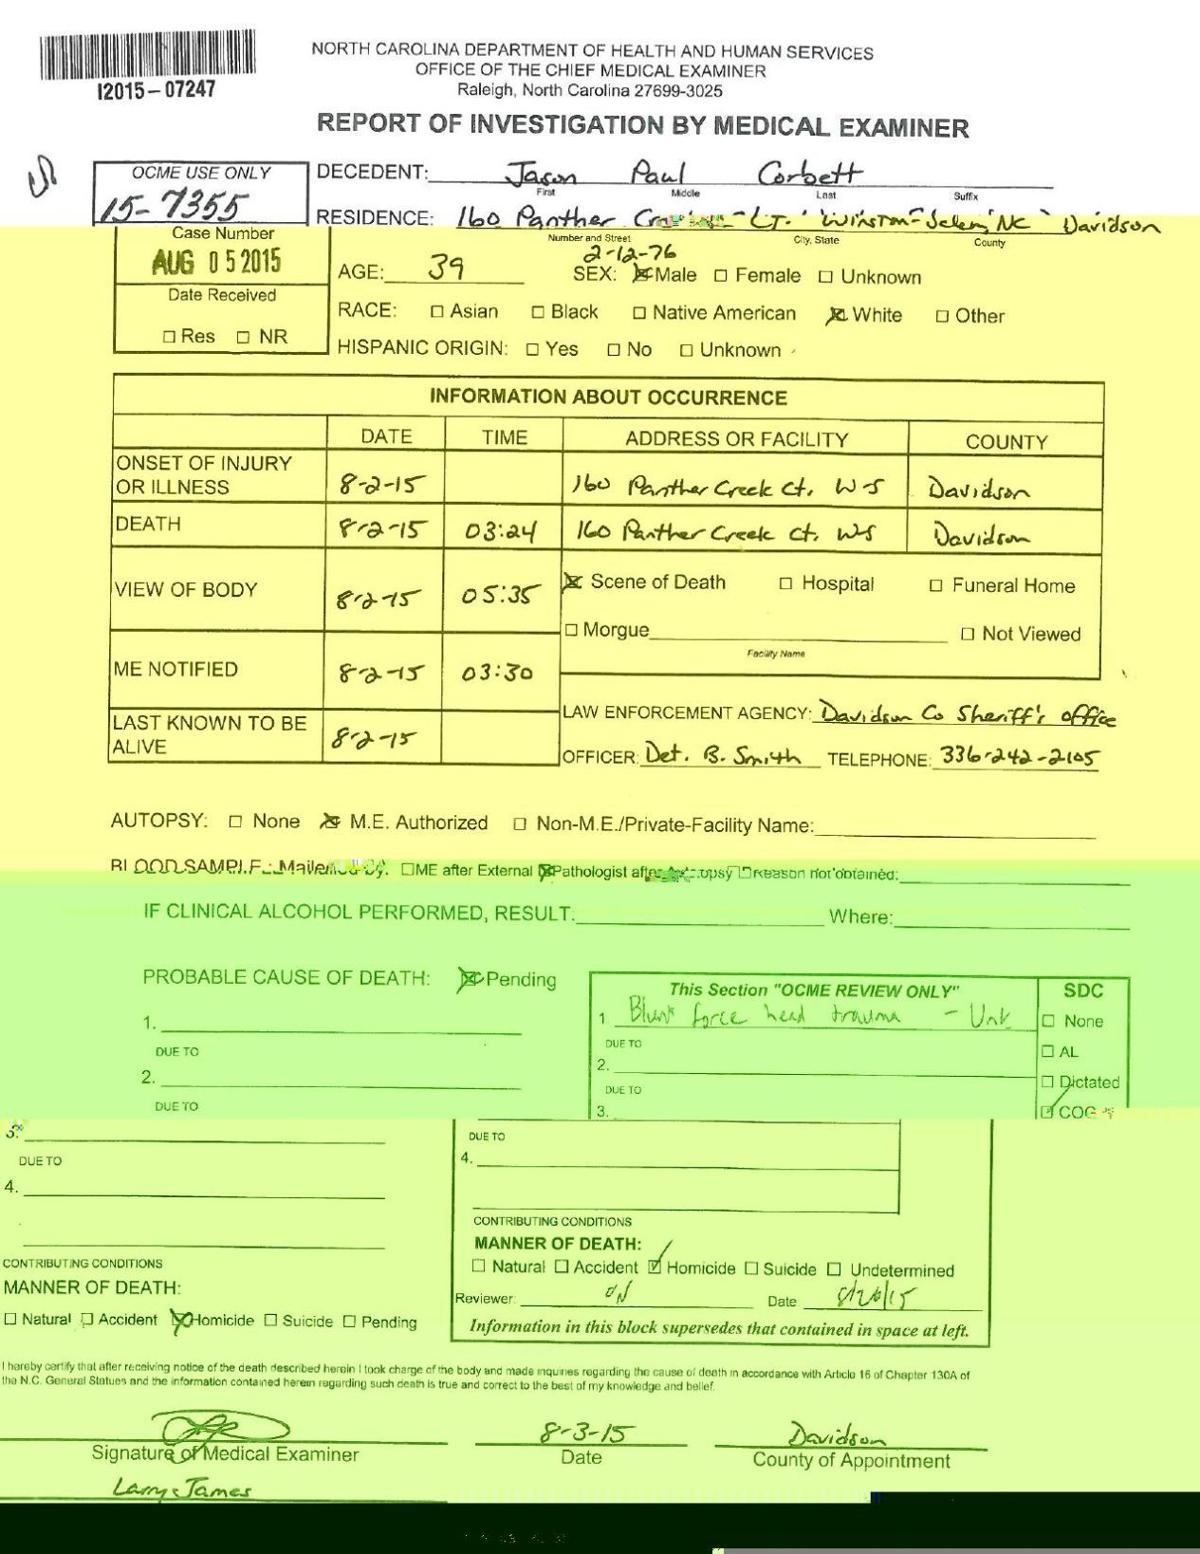 NORTH CAROLINA DEPARTMENT OF HEALTH AND HUMAN SERVICES
OFFICE OF THE CHIEF MEDICAL EXAMINER
Raleigh, North Carolina 27699-3025
I2015-07247
REPORT OF INVESTIGATION BY MEDICAL EXAMINER
OCME USE ONLY
15-7355
Case Number
AUG 05 2015
Date Received
☐ Res ☐ NR
DECEDENT: Jason Paul Corbett
First Middle Last Suffix
RESIDENCE: 160 Panther Ct. Winston-Salem, NC Davidson
Number and Street City, State County
2-12-76
AGE: 39 SEX: ☒ Male ☐ Female ☐ Unknown
RACE: ☐ Asian ☐ Black ☐ Native American ☒ White ☐ Other
HISPANIC ORIGIN: ☐ Yes ☐ No ☐ Unknown
INFORMATION ABOUT OCCURRENCE
DATE TIME ADDRESS OR FACILITY COUNTY
ONSET OF INJURY
OR ILLNESS 8-2-15 160 Panther Creek Ct. W-S Davidson
DEATH 8-2-15 03:24 160 Panther Creek Ct. WS Davidson
VIEW OF BODY 8-2-15 05:35 ☒ Scene of Death ☐ Hospital ☐ Funeral Home
☐ Morgue ☐ Not Viewed
Facility Name
ME NOTIFIED 8-2-15 03:30
LAST KNOWN TO BE
ALIVE 8-2-15
LAW ENFORCEMENT AGENCY: Davidson Co Sheriff's office
OFFICER: Det. B. Smith TELEPHONE: 336-242-2105
AUTOPSY: ☐ None ☒ M.E. Authorized ☐ Non-M.E./Private-Facility Name:
BLOOD SAMPLE: Mailed by: ☐ ME after External ☒ Pathologist after Autopsy ☐ Reason not obtained:
IF CLINICAL ALCOHOL PERFORMED, RESULT: Where:
PROBABLE CAUSE OF DEATH: ☒ Pending
1.
DUE TO
2.
DUE TO
3.
DUE TO
4.
CONTRIBUTING CONDITIONS
MANNER OF DEATH:
☐ Natural ☐ Accident ☒ Homicide ☐ Suicide ☐ Pending
This Section "OCME REVIEW ONLY"
1 Blunt force head trauma - Unk
DUE TO
2.
DUE TO
3.
DUE TO
4.
CONTRIBUTING CONDITIONS
MANNER OF DEATH:
☐ Natural ☐ Accident ☑ Homicide ☐ Suicide ☐ Undetermined
Reviewer: Date 8/26/15
Information in this block supersedes that contained in space at left.
SDC
☐ None
☐ AL
☐ Dictated
☑ COG
I hereby certify that after receiving notice of the death described herein I took charge of the body and made inquiries regarding the cause of death in accordance with Article 16 of Chapter 130A of
the N.C. General Statues and the information contained herein regarding such death is true and correct to the best of my knowledge and belief.
8-3-15 Davidson
Signature of Medical Examiner Date County of Appointment
Larry James